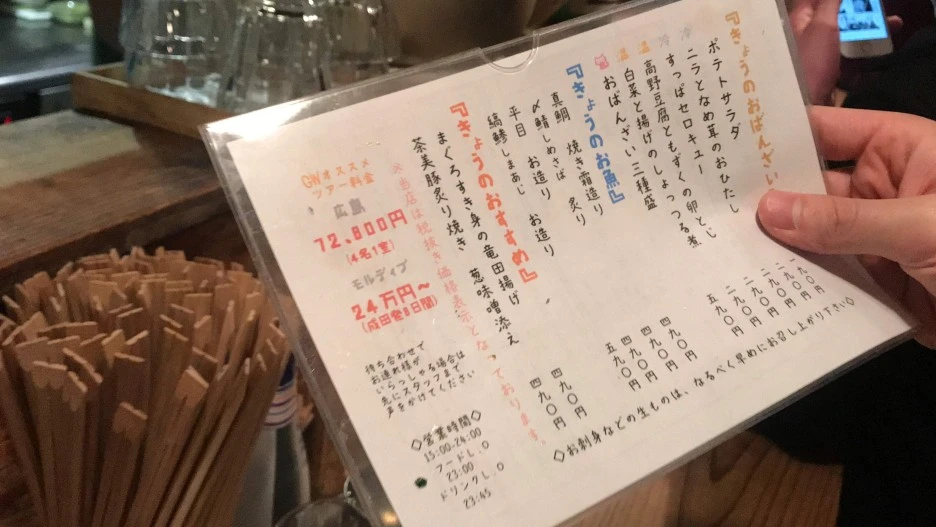 『きょうのおばんざい
ポテトサラダ
ニラとなめ茸のおひたし
すっぱセロキュー
高野豆腐ともずくの卵とじ
白菜と揚げのしょっつる煮
おばんざい三種盛 五九〇円
『きょうのお魚』
真鯛 焼き霜造り 四九〇円
〆鯖しめさば 炙り 四九〇円
平目 お造り 四九〇円
縞鯵しまあじ お造り 五九〇円
『きょうのおすすめ』
まぐろすき身の竜田揚げ 葱味噌添え 四九〇円
茶美豚炙り焼き 四九〇円
※当店は税抜き価格表示となっております。
◇お刺身などの生ものは、なるべく早めにお召し上がり下さい◇
GWオススメ
ツアー料金
広島
72,800円
(4名1室)
モルディブ
24万円~
(成田発9日間)
待ち合わせで
お連れ様が
いらっしゃる場合は
先にスタッフまで
声をかけてください
◇営業時間◇
15:00-24:00
フードL.O
23:00
ドリンクL.O
23:45